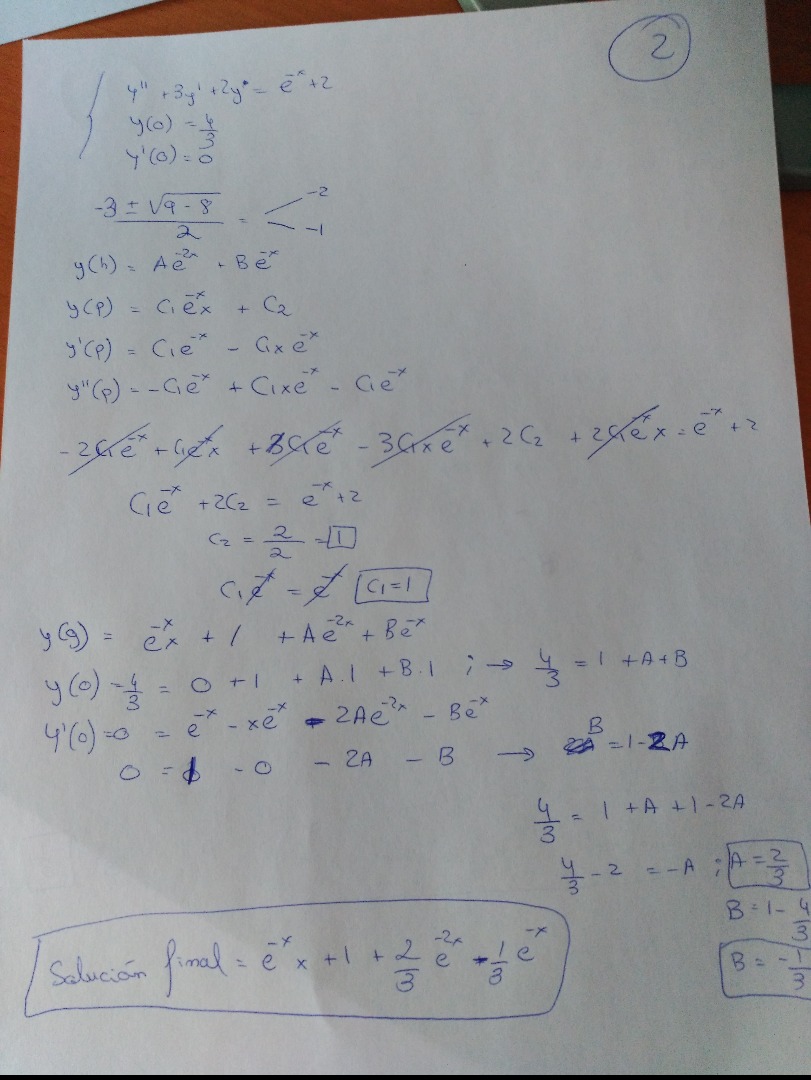 2
y'' + 3y' + 2y = e^-x + 2
y(0) = 4/3
y'(0) = 0
-3 ± √9-8 / 2 = -2
-1
y(h) = Ae^-2x + Be^-x
y(p) = C1e^-x x + C2
y'(p) = C1e^-x - C1xe^-x
y''(p) = -C1e^-x + C1xe^-x - C1e^-x
-2C1e^-x + C1e^-x x + 3C1e^-x - 3C1xe^-x + 2C2 + 2C1e^-x x = e^-x + 2
C1e^-x + 2C2 = e^-x + 2
C2 = 2/2 = 1
C1e^-x = e^-x C1=1
y(g) = e^-x x + 1 + Ae^-2x + Be^-x
y(0) = 4/3 = 0 + 1 + A.1 + B.1 ; → 4/3 = 1 + A + B
y'(0) = 0 = e^-x - xe^-x - 2Ae^-2x - Be^-x
0 = 1 - 0 - 2A - B → B = 1 - 2A
4/3 = 1 + A + 1 - 2A
4/3 - 2 = -A ; A = 2/3
B = 1 - 4/3
B = -1/3
Solución final = e^-x x + 1 + 2/3 e^-2x - 1/3 e^-x